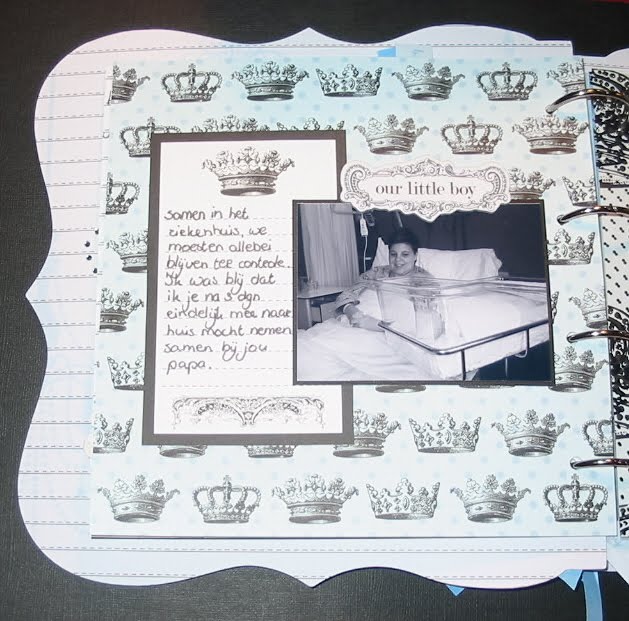 our little boy
samen in het
ziekenhuis, we
moesten allebei
blijven ter controle.
Ik was blij dat
ik je na 5 dgn
eindelijk mee naar
huis mocht nemen
samen bij jou
papa.